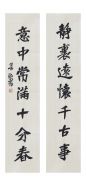 靜裏遠懷千古事
意中常滿十分春